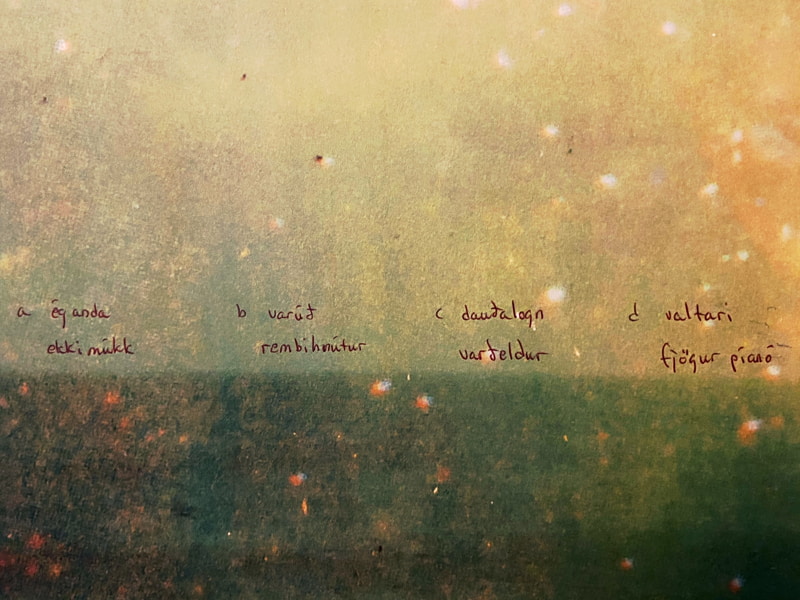 a ég anda
ekki múkk
b varúð
rembihnútur
c dauðalogn
varðeldur
d valtari
fjögur píanó